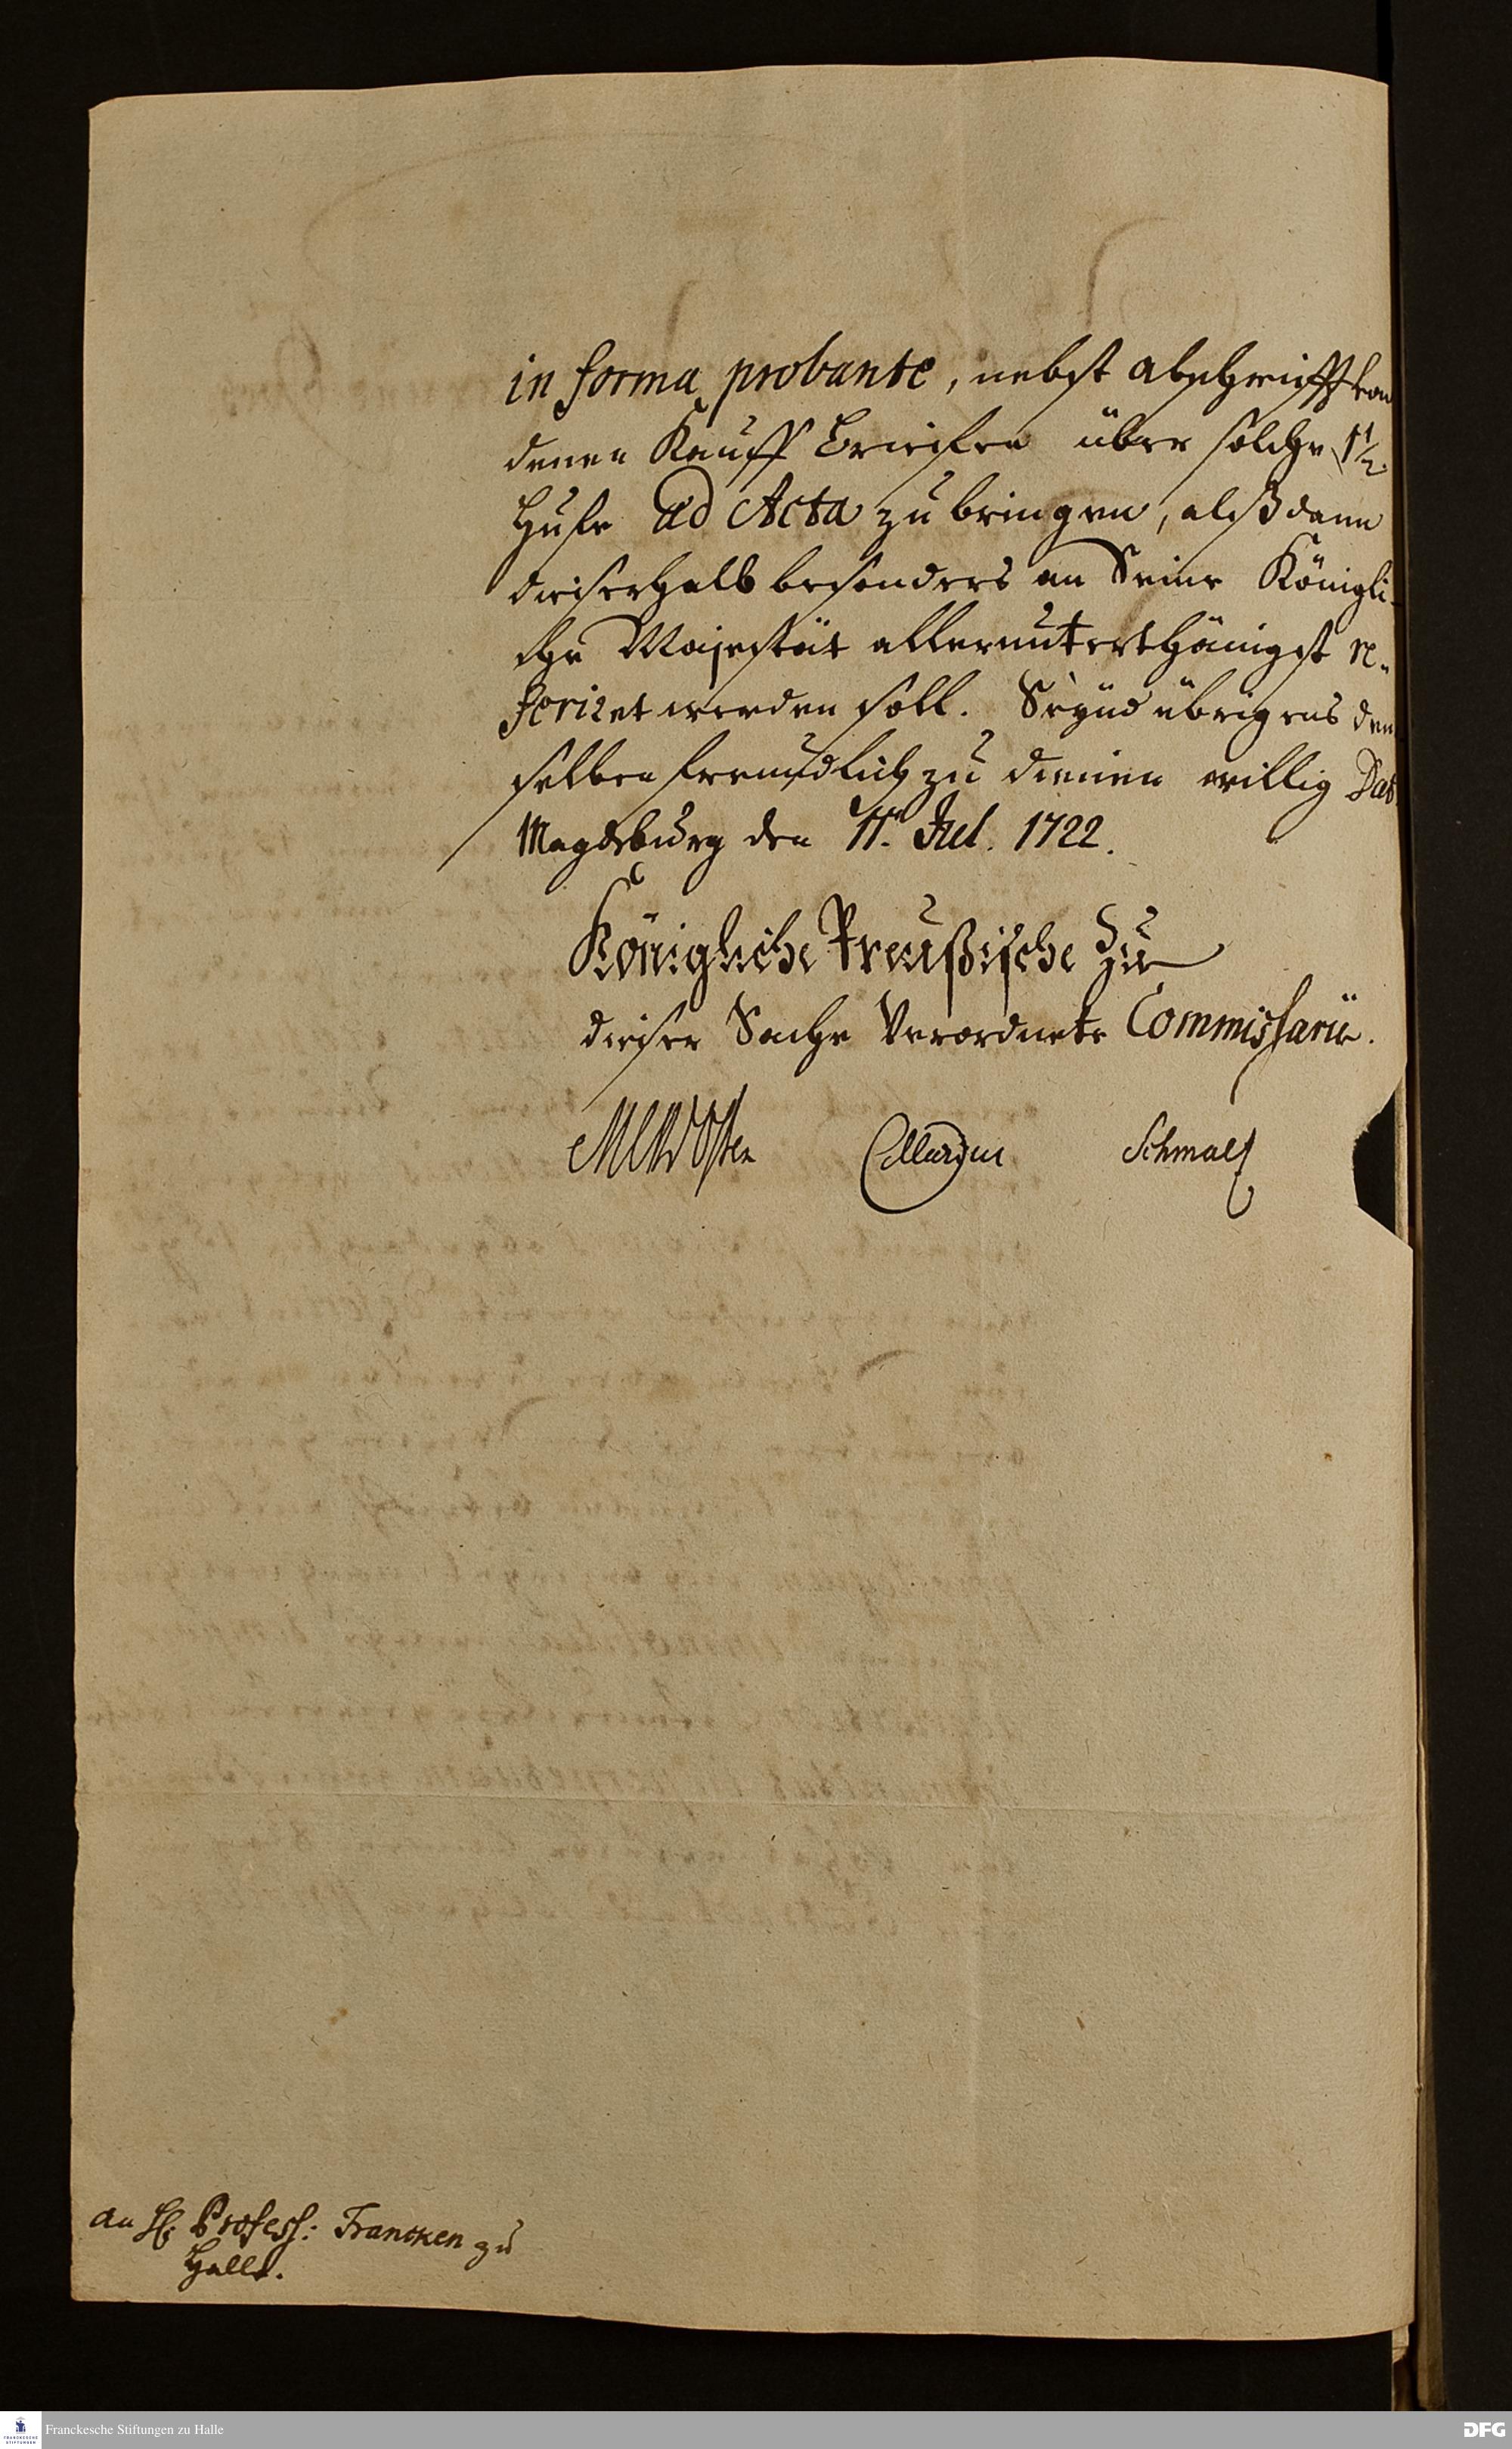 in forma probante, nebst abschrifft von
denen Kauff Briefen über solche 1½
Hufe ad Acta zu bringen, alßdann
dieserhalb besonders an Seine Königli-
che Majestät allerunterthänigst re-
scribet werden soll. Seynd übrigens den
selben freundlich zu dienen willig Dat
Magdeburg den 11. Jul. 1722.
Königliche Preußische Zu
dieser Sache Verordnete Commissarii.
Schmalz
an H. Profess: Francken zu
Halle.
Franckesche Stiftungen zu Halle
DFG